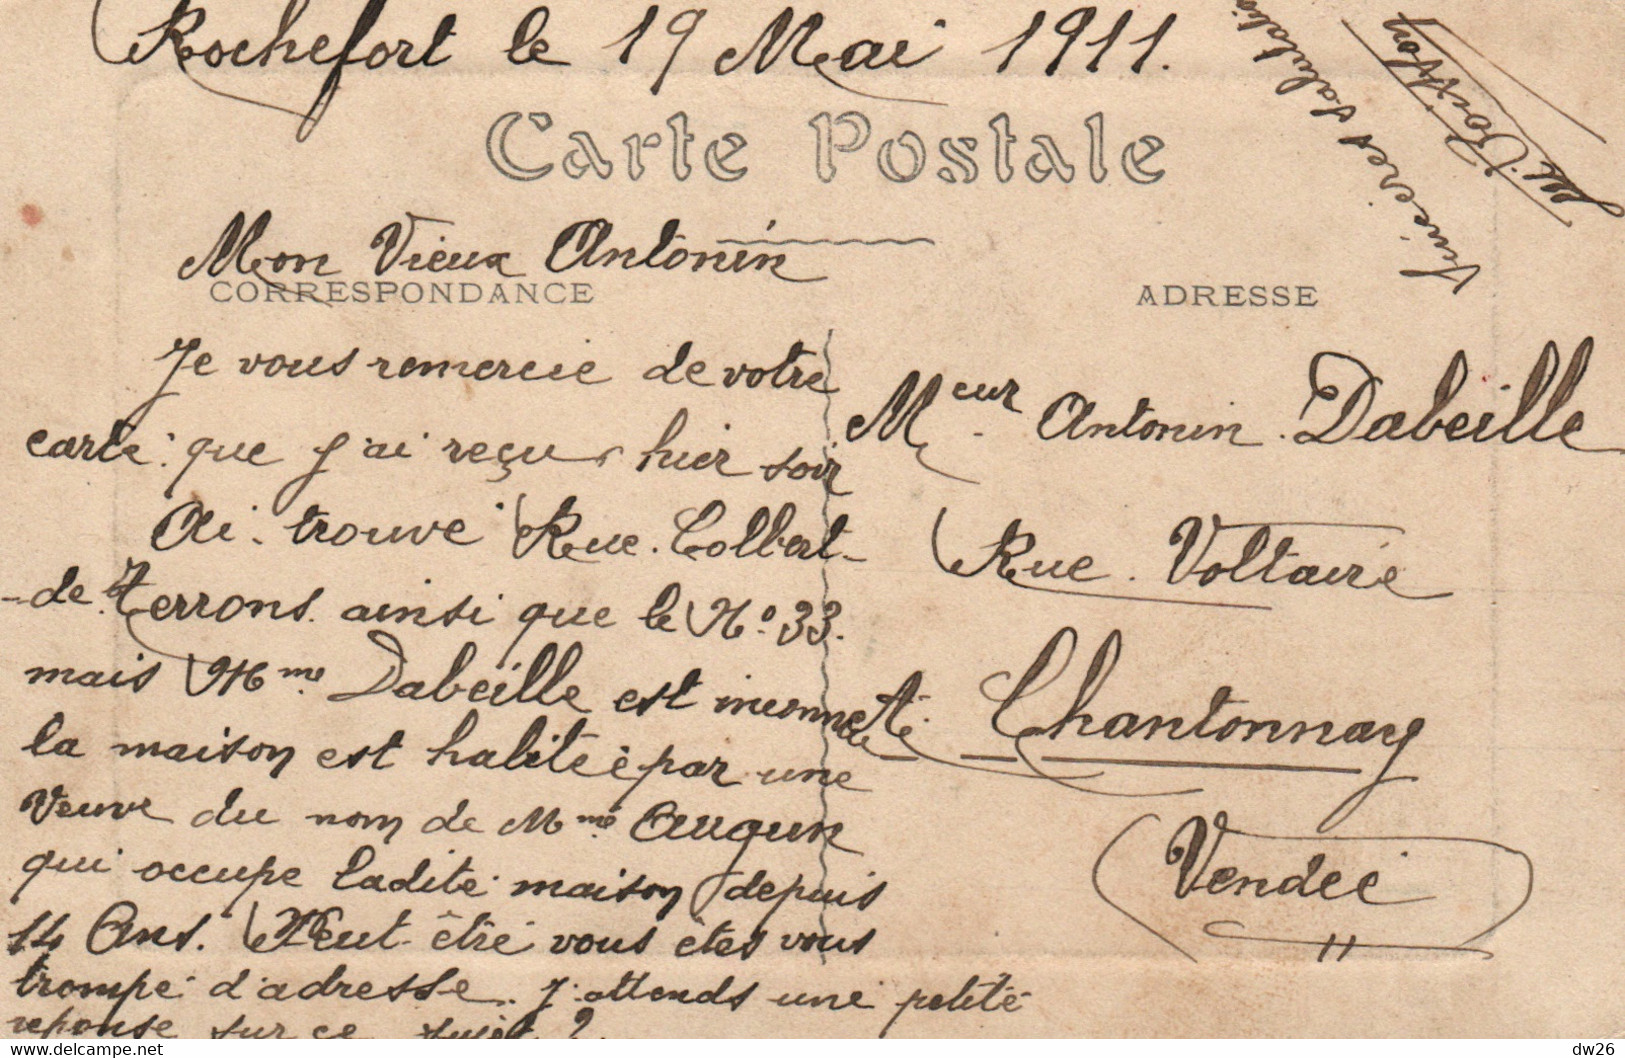 Rochefort le 19 Mai 1911.
Carte Postale
Mon Vieux Antonin
CORRESPONDANCE
Je vous remercie de votre
carte que j'ai reçu hier soir
Ai trouvé Rue Colbert
de Terrons ainsi que le No 33.
mais Mme Dabeille est inconnue
la maison est habitée par une
Veuve du nom de Mme Augun
qui occupe ladite maison depuis
14 Ans. Peut-être vous êtes vous
trompé d'adresse. J'attends une petite
reponse sur ce sujet ?
et salutatio
ADRESSE
Meur Antonin Dabeille
Rue Voltaire
A Chantonnay
Vendée
dw26